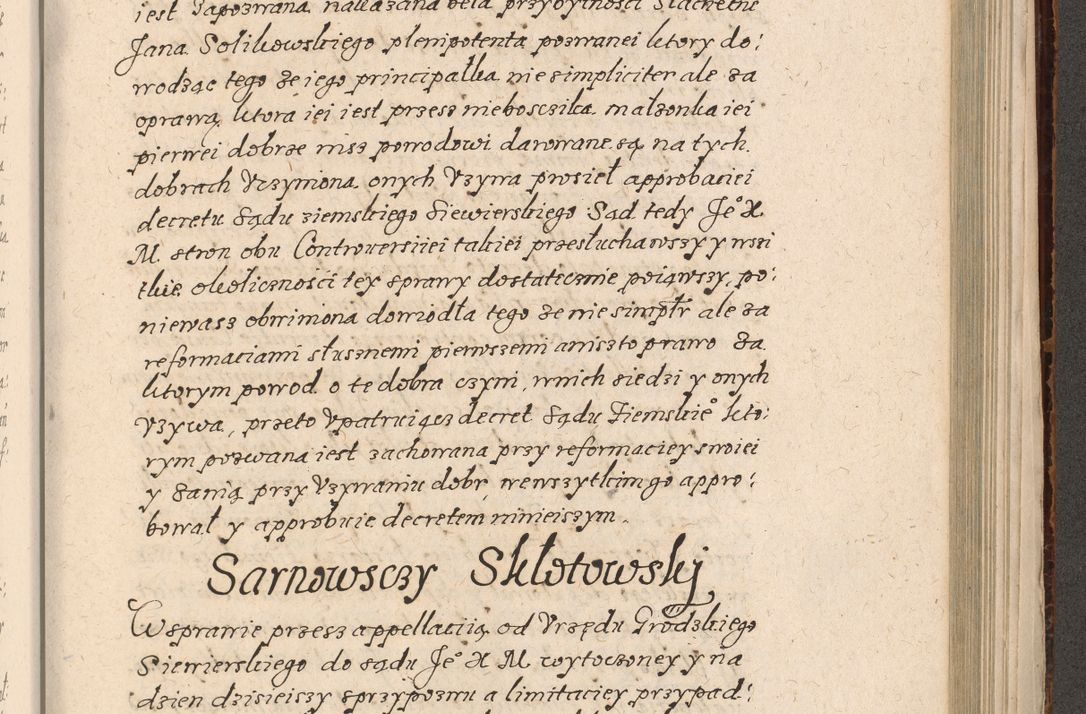 iest Zapozwana nakazana beła przybytności Slachetne
Jana Solikowskiego plenipotenta pozwanei ktory do:
wodząc tego że iego principałka nie simpliciter ale za
oprawą ktora iei iest przesz nieboszczika małzonka iei
pierwei dobrze nisz powodowi darowane są na tych
dobrach Vczyniona onych Vzywa prosieł approbaciei
decretu Sądu ziemskiego Siewierskiego Sąd tedy Je° X
M stron obu Controversiiei takiei przesłuchawszy y wszi
tkie okolicznosci tey sprawy dostatecznie poiąwszy, po:
niewasz obwiniona dowiodła tego że nie simplr ale za
reformaciami słusznemi pierwszemi aniszto prawo za
ktorym powod o te dobra czyni, wnich siedzi y onych
Vzywa, przeto Vpatruiącz decret Sądu Ziemskie° kto:
rym pozwana iest zachowana przy reformaciey swoiei
y zanią przy Vzywaniu dobr, wewszytkim go appro:
bował y approbuie decretem ninieiszym.
Sarnowsczy Skłotowskij
Wsprawie przesz appellaciią od Vrzędu Grodzkiego
Siewierskiego do sądu Je° X M wytoczoney y na
dzien dzisieiszy sprzypozwu a limitaciey przypad: